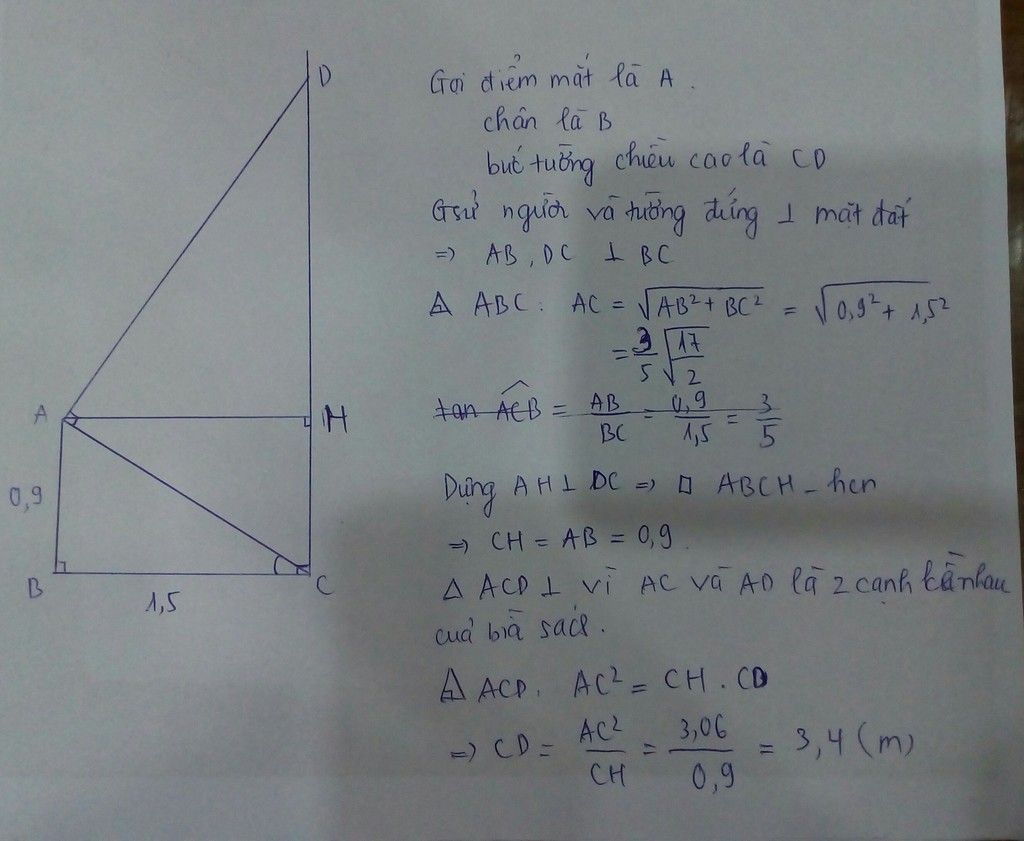 D
A
H
0,9
B
1,5
C
Gọi điểm mắt là A.
chân là B
bức tường chiều cao là CD
Gsử người và tường đứng ⊥ mặt đất
=> AB, DC ⊥ BC
Δ ABC: AC = √(AB² + BC²) = √(0,9² + 1,5²)
= 3/5 √(17/2)
tan ACB = AB/BC = 0,9/1,5 = 3/5
Dựng AH ⊥ DC => □ ABCH - hcn
=> CH = AB = 0,9.
Δ ACD ⊥ vì AC và AD là 2 cạnh kề nhau
của bìa sách.
Δ ACD, AC² = CH . CD
=> CD = AC²/CH = 3,06/0,9 = 3,4 (m)